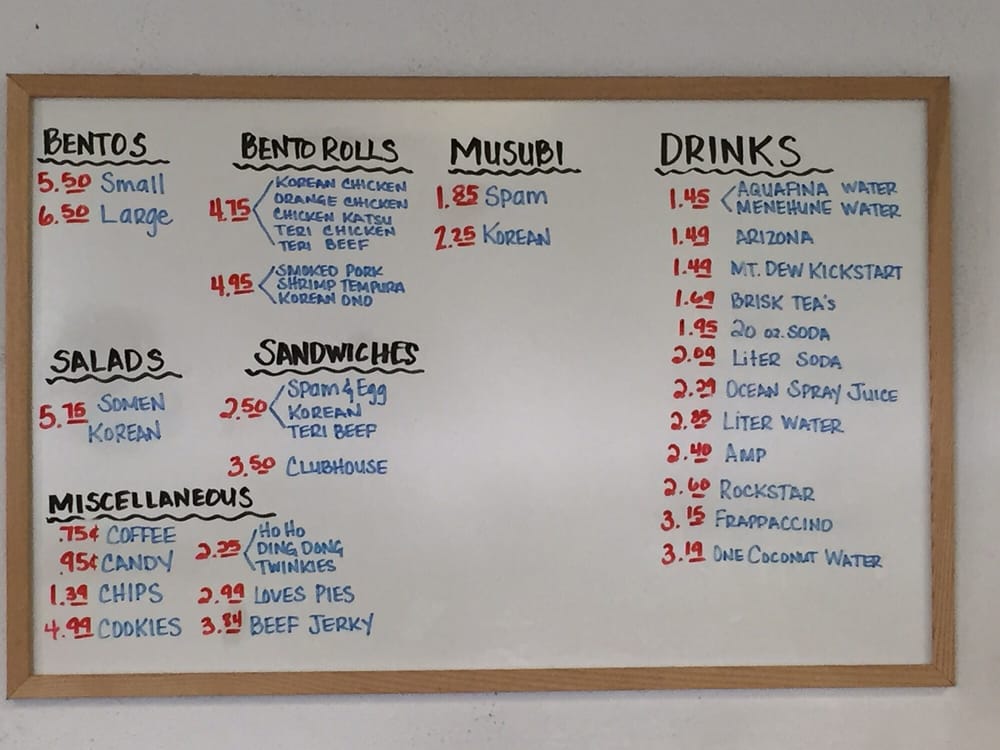 BENTOS
5.50 Small
6.50 Large
BENTO ROLLS
4.75
KOREAN CHICKEN
ORANGE CHICKEN
CHICKEN KATSU
TERI CHICKEN
TERI BEEF
4.95
SMOKED PORK
SHRIMP TEMPURA
KOREAN ONO
MUSUBI
1.85 Spam
2.25 KOREAN
DRINKS
1.45
AQUAFINA WATER
MENEHUNE WATER
1.49 ARIZONA
1.49 MT. DEW KICKSTART
1.69 BRISK TEA'S
1.95 20 oz. SODA
2.09 LiTER SODA
2.29 OCEAN SPRAY JUICE
2.85 LITER WATER
2.40 AMP
2.60 ROCKSTAR
3.15 FRAPPACCINO
3.19 ONE COCONUT WATER
SALADS
5.75 SOMEN
KOREAN
SANDWICHES
2.50
Spam & Egg
KOREAN
TERI BEEF
3.50 CLUBHOUSE
MISCELLANEOUS
.75¢ COFFEE
.95¢ CANDY
1.39 CHIPS
4.99 COOKIES
2.25
HO HO
DING DONG
TWINKIES
2.99 LOVES PIES
3.84 BEEF JERKY